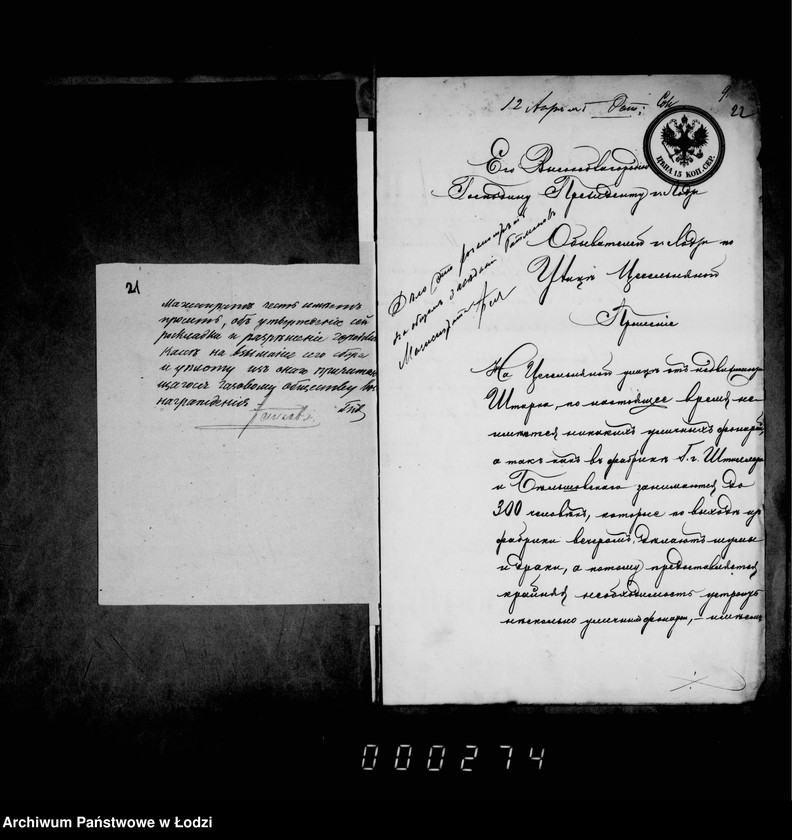 21
Магистратъ честь имѣетъ
просить, объ утвержденіи сей
раскладки и разрѣшеніе городской
кассѣ на взиманіе сего сбора
и уплату изъ онаго причитаю
щагося Газовому обществу воз
награжденія.
12 Апрѣля
9
22
ЦѢНА 15 КОП. СЕР.
Его Высокоблагородію
Господину Президенту г. Лодзи
Обывателей г. Лодзи по
Улицѣ Цегельняной
Прошеніе
Дѣло это разсмотрѣть
на общемъ засѣданіи
Магистрата
На Цегельняной улицѣ отъ недвижимо
Штарка, по настоящее время не
имѣется никакихъ уличныхъ фонарей,
а такъ какъ въ фабрикѣ Г. г.
и занимается до
300 человѣкъ, которые по выходѣ изъ
фабрики вечеромъ, дѣлаютъ шумы
и драки, а потому представляется
крайняя необходимость устроить
нѣсколько уличныхъ фонарей, – имѣемъ
000274
Archiwum Państwowe w Łodzi